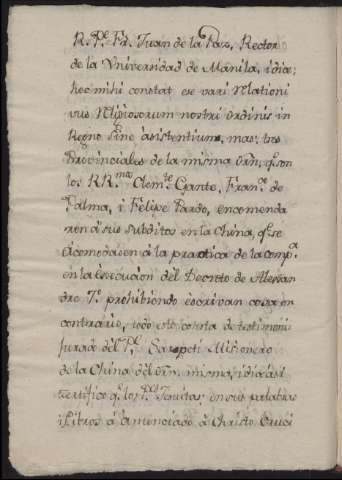 R. Pe. Fr. Juan de la Paz, Rector
de la Vniversidad de Manila, idiæ;
hoc mihi constat ex vari Relationi
vus Religiosorum nostri ordinis in
Regno Sinæ asistentium, mas, tres
Provinciales de la misma Orn, q. son
los RR. mos Clemte. Gante, Franco. de
Palma, i Felipe Pardo, encomenda
ron á sus subditos en la China, q. se
acomodasen á la practica de la compa.
en la execucion del Decreto de Alexan
dro 7o. prohibiendo escrivan cosa en
contrario, todo esto consta de testimonio
jurado del Pe. Sarpeti Missionero
de la China del Orn. misma, i dice asi
certifico q. los Pes. Jesuitas en sus palabras
i libros á anunciado á Christo Cruci